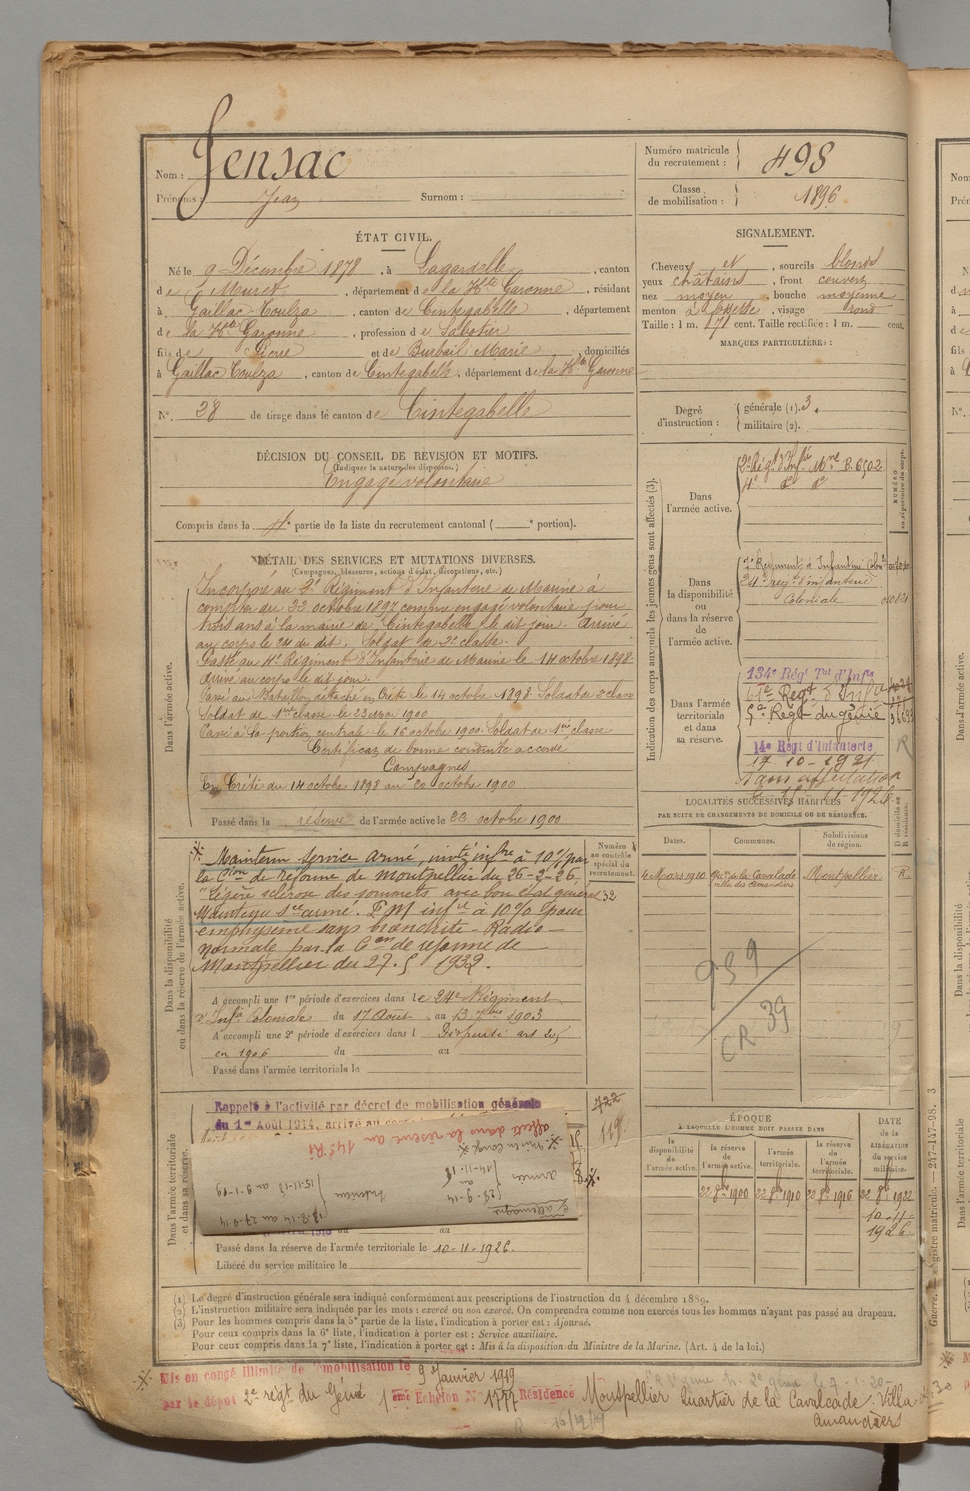 Nom : Jensac
Prénoms : Jean Surnom :
Numéro matricule du recrutement : 498
Classe de mobilisation : 1896
ÉTAT CIVIL.
Né le 9 Décembre 1878, à Lagardelle, canton
de Muret, département de la Hte Garonne, résidant
à Gaillac-Toulza, canton de Cintegabelle, département
de la Hte Garonne, profession de Sabotier
fils de Pierre et de Burbail Marie, domiciliés
à Gaillac Toulza, canton de Cintegabelle, département de la Hte Garonne
N° 28 de tirage dans le canton de Cintegabelle
SIGNALEMENT.
Cheveux et, sourcils blonds
yeux châtains, front couvert
nez moyen, bouche moyenne
menton à fossette, visage rond
Taille : 1 m. 171 cent. Taille rectifiée : 1 m. cent.
MARQUES PARTICULIÈRES :
Degré d'instruction : générale (1). 3.
militaire (2).
DÉCISION DU CONSEIL DE RÉVISION ET MOTIFS.
(Indiquer la nature des dispenses.)
Engagé volontaire
Compris dans la 4e partie de la liste du recrutement cantonal ( e portion).
DÉTAIL DES SERVICES ET MUTATIONS DIVERSES.
(Campagnes, blessures, actions d'éclat, décorations, etc.)
Dans l'armée active.
Incorporé au 2e Régiment d'Infanterie de Marine à
compter du 23 octobre 1897 comme engagé volontaire pour
trois ans à la mairie de Cintegabelle le dit jour. Arrivé
au corps le 24 du dit. Soldat de 2e classe.
Passé au 4e Régiment d'Infanterie de Marine le 14 octobre 1898
Arrivé au corps le dit jour.
Passé au Bataillon détaché en Crète le 14 octobre 1898 Soldat de 2e classe
Soldat de 1ère classe le 23 mai 1900
Passé à la portion centrale le 16 octobre 1900 Soldat de 1ère classe
Certificat de bonne conduite accordé
Campagnes
En Crète du 14 octobre 1898 au 20 octobre 1900
Passé dans la réserve de l'armée active le 23 octobre 1900
Indication des corps auxquels les jeunes gens sont affectés (3).
Dans l'armée active.
2e Régt d'Infie Mne B. 6502
4e do do
NUMÉRO au répertoire du corps.
Dans la disponibilité ou dans la réserve de l'armée active.
2e Régiment d'Infanterie Colonle
24e régt d'infanterie
Coloniale
Dans l'armée territoriale et dans sa réserve.
134e Régt Tal d'Infie
Régt d'Infie
5e Régt du génie
14e Régt d'Infanterie
17-10-1921
Sans affectation
LOCALITÉS SUCCESSIVES HABITÉES
PAR SUITE DE CHANGEMENTS DE DOMICILE OU DE RÉSIDENCE.
Dates. Communes. Subdivisions de région. D domicile ou R résidence.
4 Mars 1910 Qer de la Cavalade villa des Amandiers Montpellier R
959
CR 39
Dans la disponibilité ou dans la réserve de l'armée active.
Numéro au contrôle spécial du recrutement.
Maintenu service armé, invté infre à 10% par
la Cion de réforme de Montpellier du 26-2-26.
"Légère sclérose des sommets avec bon état général
Maintenu Sce armé. I.P.M infre à 10% pour
emphysème sans bronchite - Radio -
normale par la Con de réforme de
Montpellier du 27.5 1932.
A accompli une 1re période d'exercices dans le 24e Régiment
d'Infie Coloniale du 17 Août au 13 7bre 1903
A accompli une 2e période d'exercices dans l Dispensé
en 1906 du au
Passé dans l'armée territoriale le
Dans l'armée territoriale et dans sa réserve.
Rappelé à l'activité par décret de mobilisation générale
du 1er Août 1914, arrivé au corps
722
119
affecté dans la réserve au 14e RI
Intérieur
15-11-18 au 9-1-19
armées
28-9-14 au 14-11-18
Passé dans la réserve de l'armée territoriale le 10-11-1926.
Libéré du service militaire le
ÉPOQUE
À LAQUELLE L'HOMME DOIT PASSER DANS
la disponibilité de l'armée active. la réserve de l'armée active. l'armée territoriale. la réserve de l'armée territoriale.
DATE de la LIBÉRATION du service militaire.
22 8bre 1900 22 8bre 1910 22 8bre 1916 22 8bre 1922
10-11-1926
(1) Le degré d'instruction générale sera indiqué conformément aux prescriptions de l'instruction du 4 décembre 1889.
(2) L'instruction militaire sera indiquée par les mots : exercé ou non exercé. On comprendra comme non exercés tous les hommes n'ayant pas passé au drapeau.
(3) Pour les hommes compris dans la 5e partie de la liste, l'indication à porter est : Ajourné.
Pour ceux compris dans la 6e liste, l'indication à porter est : Service auxiliaire.
Pour ceux compris dans la 7e liste, l'indication à porter est : Mis à la disposition du Ministre de la Marine. (Art. 4 de la loi.)
Mis en congé illimité de démobilisation le 9 Janvier 1919
par le dépôt 2e régt du Génie 1ème Echelon N° 1777 Résidence Montpellier Quartier de la Cavalcade. Villa
amandiers
16/12/19